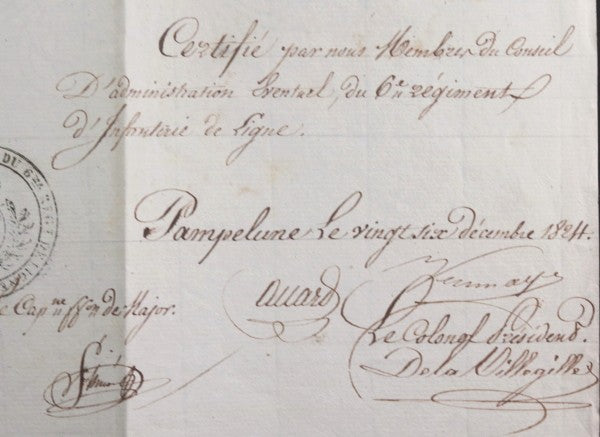 Certifié par nous Membres du Conseil
D'administration Eventuel, du 6.e régiment
d'Infanterie de Ligne.
DU 6me REGT DE LIGNE
Pampelune Le vingt six décembre 1824.
Cap.ne ff.on de Major.
Le Colonel Président.
De la Villegille